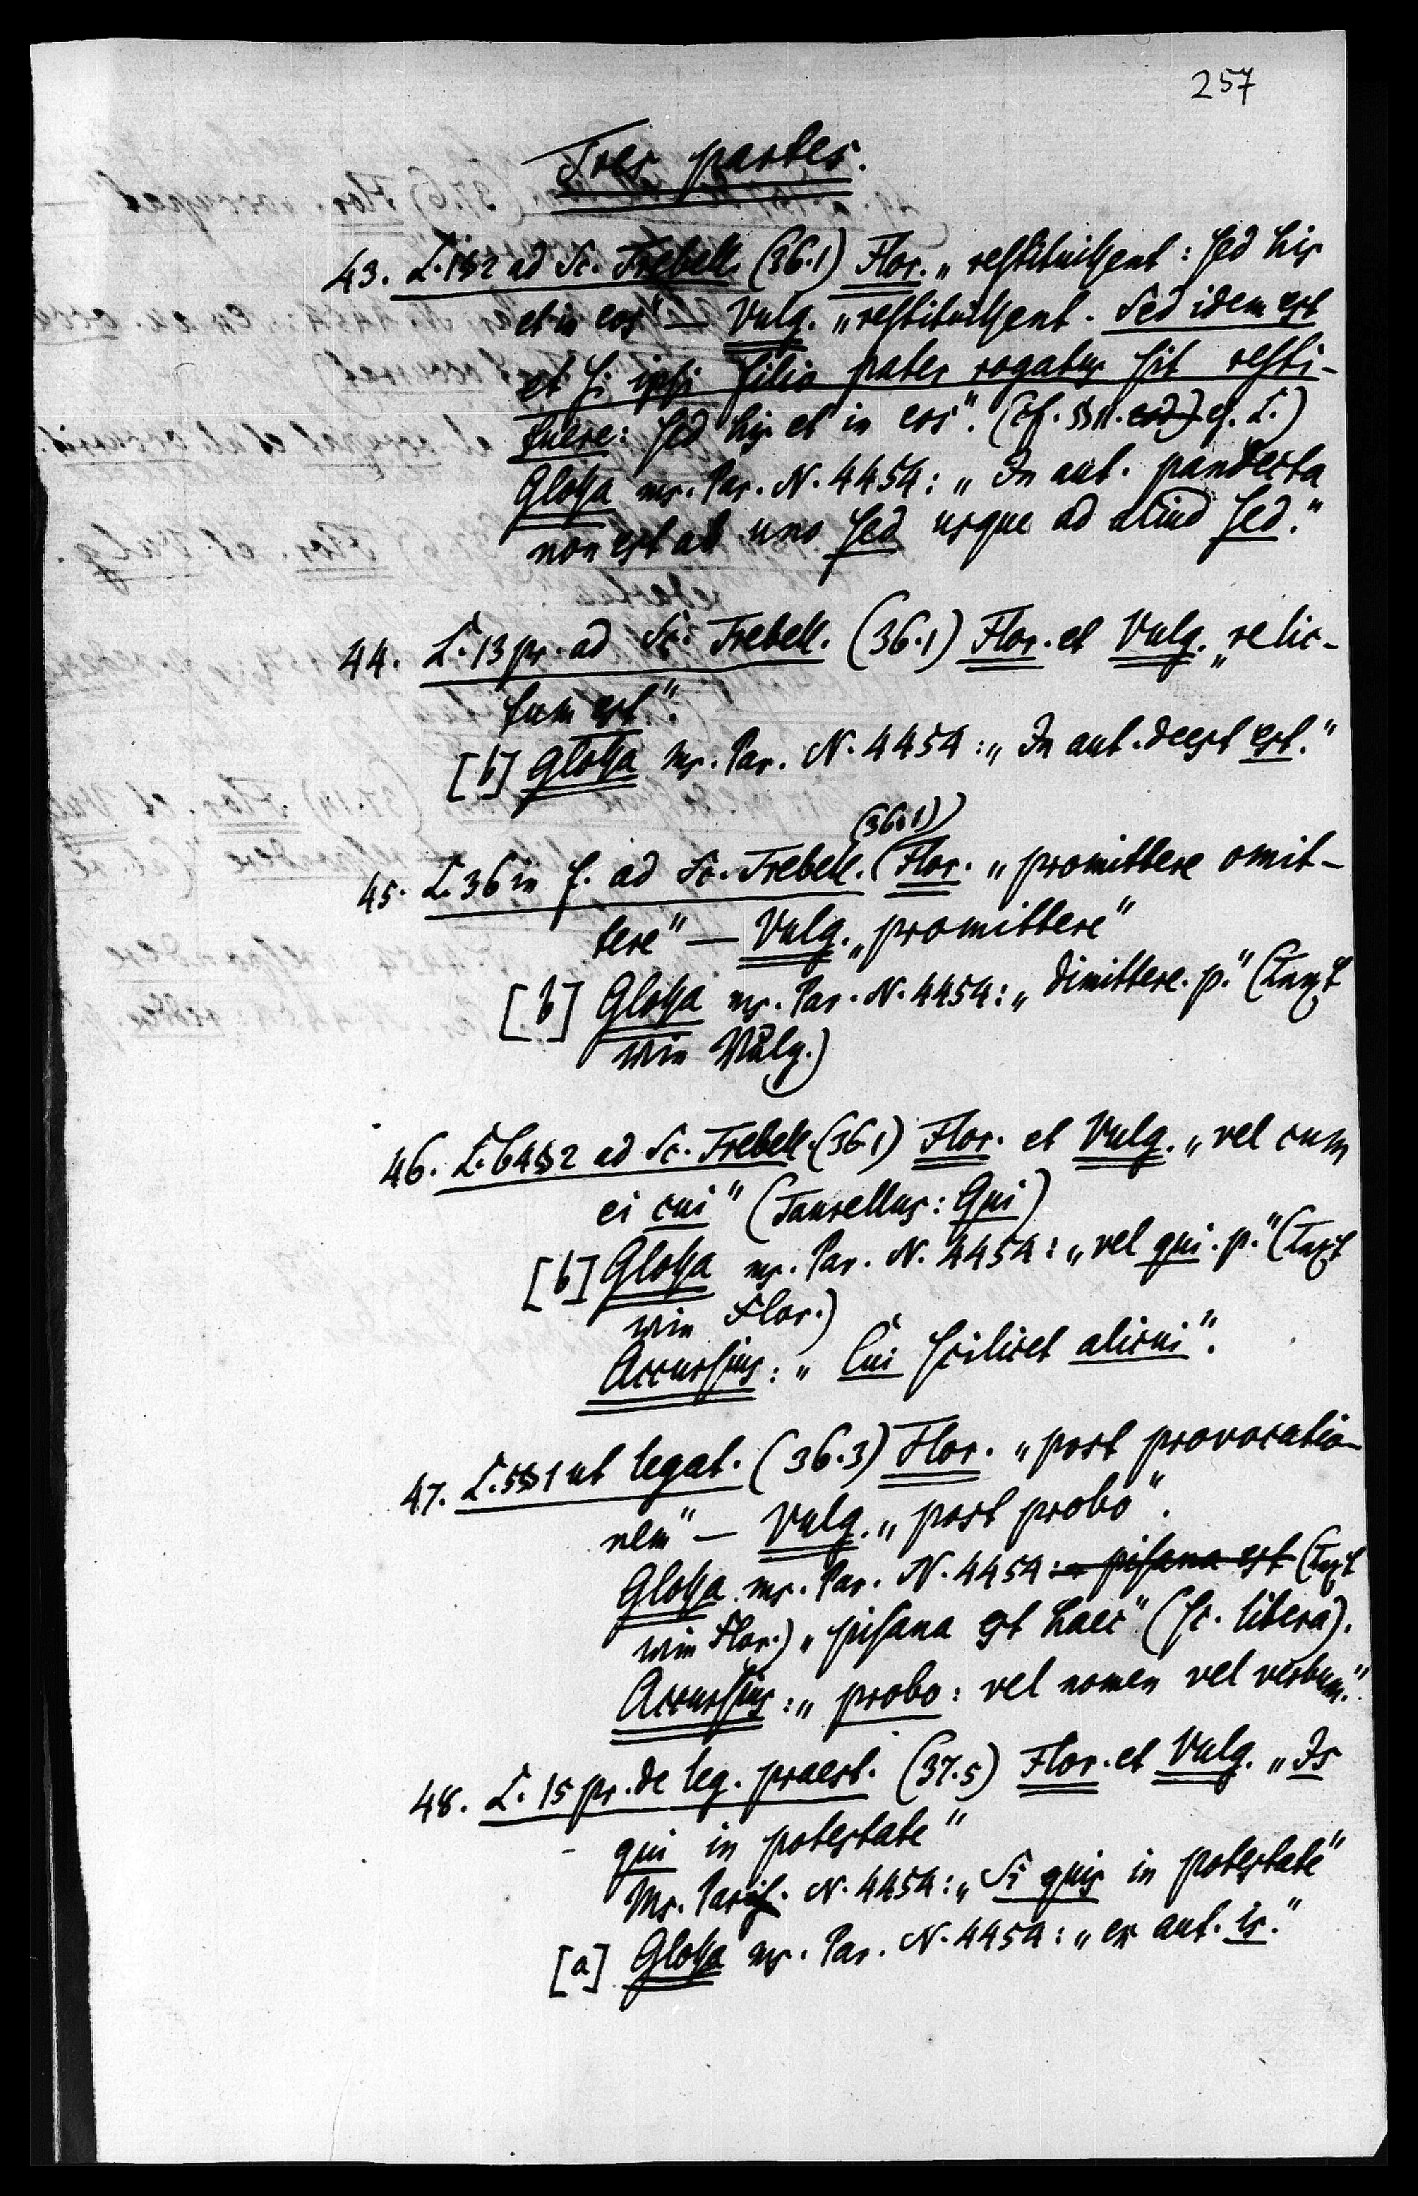 257
Tres partes.
43. L. 1 § 2 ad Sc. Trebell. (36.1) Flor. „restituissent: sed his
et in eos“ — Vulg. „restituissent. Sed idem est
et si ipsi filio pater rogatus sit resti-
tuere: sed his et in eos“. (cf. § 11. ej. L.)
Glossa ms. Par. N. 4454: „In aut. pandecta
non est ab uno sed usque ad aliud sed.“
44. L. 13 pr. ad Sc. Trebell. (36.1) Flor. et Vulg. „relic-
tum est“.
[b] Glossa ms. Par. N. 4454: „In aut. deest est.“
45. L. 36 in f. ad Sc. Trebell. (36.1) Flor. „promittere omit-
tere“ — Vulg. „promittere“
[b] Glossa ms. Par. N. 4454: „dimittere. p.“ (Text
wie Vulg.)
46. L. 64 § 2 ad Sc. Trebell. (36.1) Flor. et Vulg. „vel cum
ei cui“ (Taurellus: Qui)
[b] Glossa ms. Par. N. 4454: „vel qui. p.“ (Text
wie Flor.)
Accursius: „Cui scilicet alicui“.
47. L. 5 § 1 ut legat. (36.3) Flor. „post provocatio-
nem“ — Vulg. „post probo“.
Glossa ms. Par. N. 4454: „pisana est (Text
wie Flor.) „pisana est haec“ (sc. litera).
Accursius: „probo: vel nomen vel verbum.“
48. L. 15 pr. de leg. praest. (37.5) Flor. et Vulg. „Is
qui in potestate“
Ms. Paris. N. 4454: „Si quis in potestate“
[a] Glossa ms. Par. N. 4454: „en aut. is.“